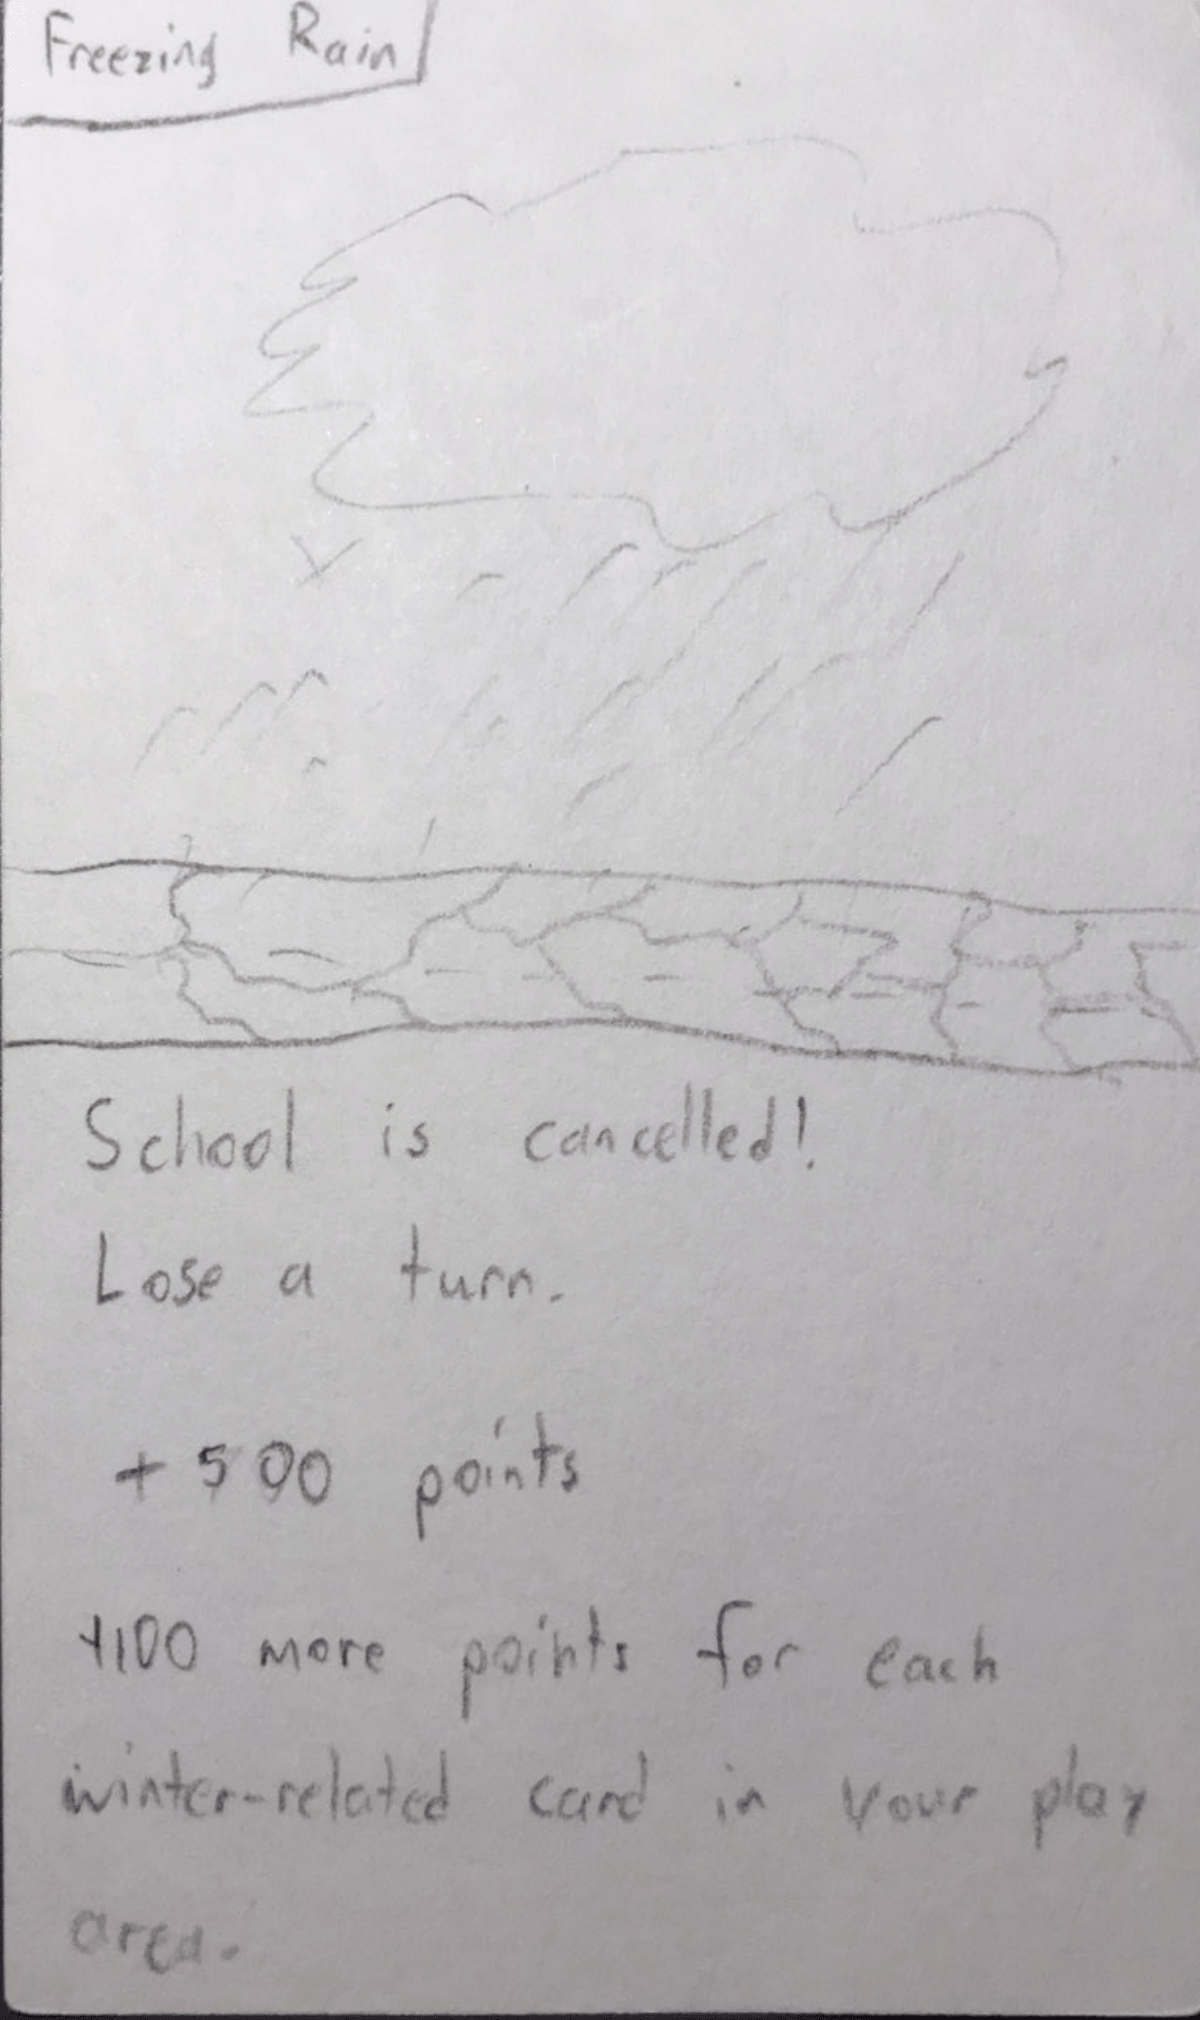 Freezing Rain
School is cancelled!
Lose a turn.
+500 points
+100 more points for each
winter-related card in your play
area.